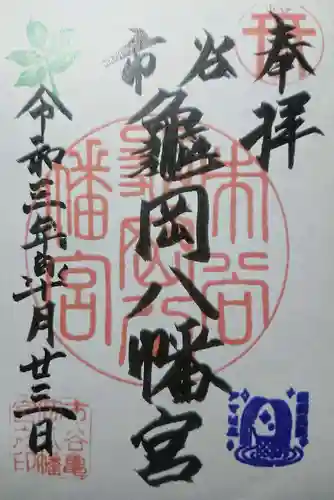 奉拝
市谷
龜岡八幡宮
令和三年皐月廿三日
市谷
龜岡八
幡宮
市谷亀
岡八幡
宮之印